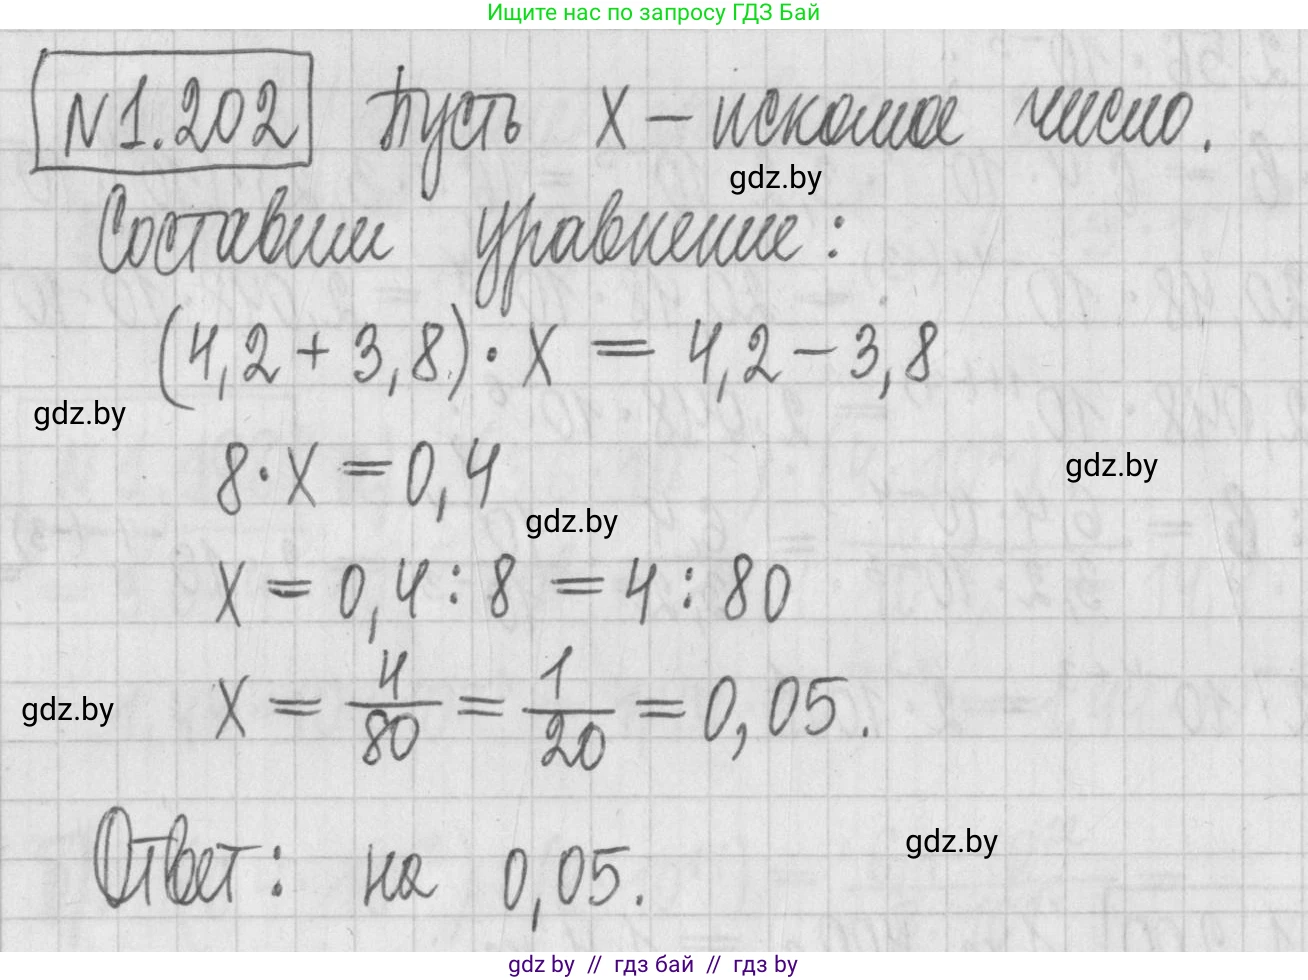 Ищите нас по запросу ГДЗ Бай
N1.202 Пусть x – искомое число.
gdz.by
Составим уравнение:
(4,2 + 3,8) · x = 4,2 – 3,8
gdz.by
8 · x = 0,4
gdz.by
gdz.by
x = 0,4 : 8 = 4 : 80
x = 4/80 = 1/20 = 0,05.
gdz.by
gdz.by
Ответ: на 0,05.
gdz.by // гдз бай // гдз by